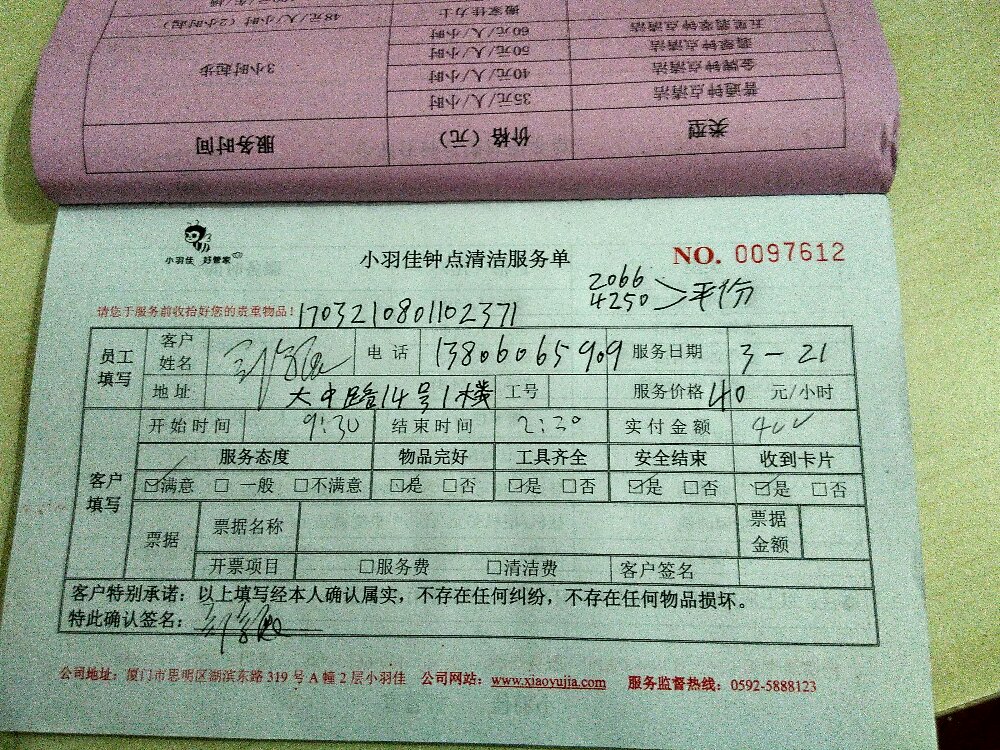 48元/人/小时（2小时起）
搬家佳力士
60元/人/小时
五星翡翠钟点清洁
3小时起步
50元/人/小时
翡翠钟点清洁
40元/人/小时
金牌钟点清洁
35元/人/小时
普通钟点清洁
服务时间
价格（元）
类型
小羽佳 好管家
小羽佳钟点清洁服务单
NO. 0097612
2066
4250 平份
请您于服务前收拾好您的贵重物品！1703210801102371
员工填写
客户姓名
电话 13806065909 服务日期 3-21
地址 大中路14号1楼 工号 服务价格 40 元/小时
客户填写
开始时间 9:30 结束时间 2:30 实付金额 400
服务态度 物品完好 工具齐全 安全结束 收到卡片
☑满意 □一般 □不满意 ☑是 □否 ☑是 □否 ☑是 □否 ☑是 □否
票据 票据名称 票据金额
开票项目 □服务费 □清洁费 客户签名
客户特别承诺：以上填写经本人确认属实，不存在任何纠纷，不存在任何物品损坏。
特此确认签名：
公司地址：厦门市思明区湖滨东路 319 号 A 幢 2 层小羽佳 公司网站：www.xiaoyujia.com 服务监督热线：0592-5888123